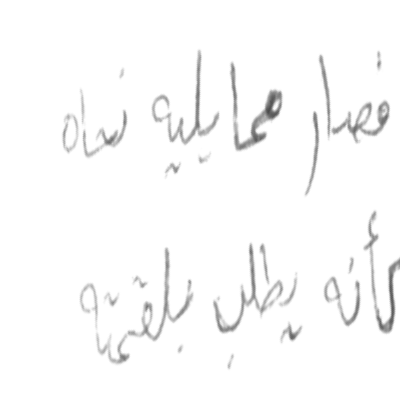 فصار مما يليه تجاه
كأنه يطلب بلقمته